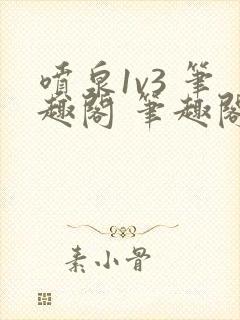 噴泉1v3 筆
趣閣 筆趣閣
素小骨